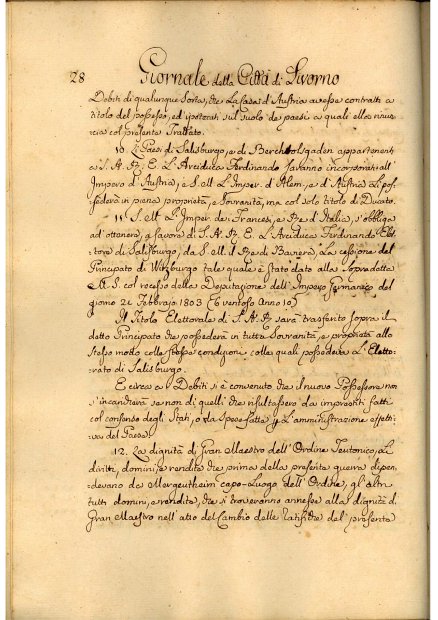 28 Giornale della Città di Livorno
Debiti di qualunque Sorta, che La Casa d'Austria avesse contratti a
titolo del possesso, ed ipotecati sul suolo de paesi a quali ella rinun-
cia col presente Trattato.
10. I Paesi di Salisburgo, e di Berchtolsgaden appartenenti
a S. A. R. E. L'Arciduca Ferdinando saranno incorporati all'
Impero d'Austria, e S. M. L'Imper. d'Alem., e d'Austria Li pos-
sederà in piena proprietà, e Sovranità, ma col solo titolo di Ducato.
11. S. M. L'Imper. de Francesi, e Re d'Italia, s'obbliga
ad ottenere, a favore di S. A. R. E. L'Arciduca Ferdinando Elet-
tore di Salisburgo, da S. M. il Re di Baviera, La cessione del
Principato di Wirzburgo tale quale è stato dato alla Sopradetta
M. S. col recesso della Deputazione dell'Impero Germanico del
giorno 26 Febbrajo 1803 (6 ventoso Anno 10)
Il Titolo Elettorale di S. A. R. sarà trasferito sopra il
detto Principato che possederà in tutta Sovranità, e proprietà allo
stesso modo colle stesse condizioni colle quali possedeva L'Eletto-
rato di Salisburgo.
E circa a Debiti si è convenuto che il nuovo Possessore non
s'incaricherà se non di quelli che risultassero da imprestiti fatti
col consenso degli Stati, o da spese fatte p L'amministrazione effetti-
va del Paese.
12. La dignità di Gran Maestro dell'Ordine Teutonico, Li
diritti, domini, e rendite che prima della presente guerra dipen-
devano da Mergeutheim capo-Luogo dell'Ordine, gl'altri
tutti domini, e rendite, che si troveranno annesse alla dignità di
Gran Maestro nell'atto del Cambio delle ratifiche del presente